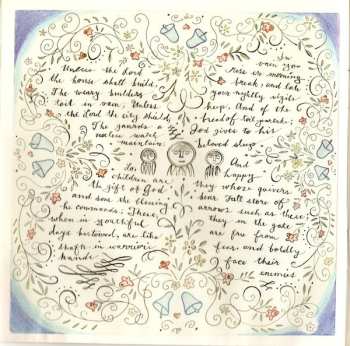 Unless the Lord
the house shall build,
The weary builders
toil in vain; Unless
the Lord the city shield,
The guards a
useless watch
maintain.
In
vain you
rise ere morning
break, and late
your nightly vigils
keep, And of the
bread of toil partake;
God gives to his
beloved sleep.
Lo,
children are
the gift of God
and sons the blessing
he commands; These,
when in youthful
days bestowed, are like
shafts in warriors'
hands.
And
happy
they whose quivers
bear Full store of
arrows such as these;
they in the gate
are free from
fear, and boldly
face their
enemies